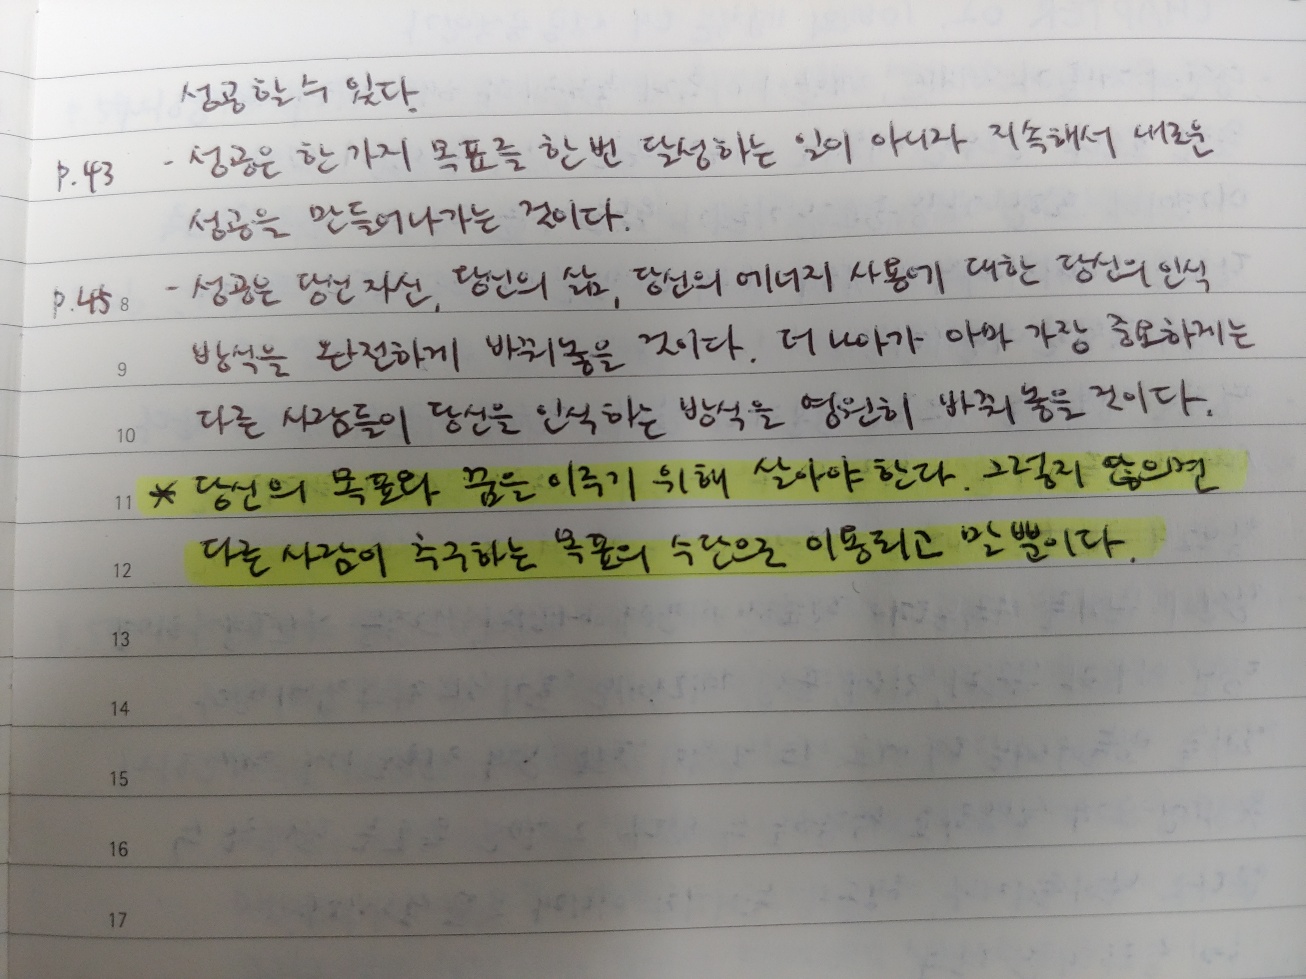 성공할 수 있다.
p.43 - 성공은 한 가지 목표를 한번 달성하는 일이 아니라 지속해서 새로운
성공을 만들어나가는 것이다.
p.45 8 - 성공은 당신 자신, 당신의 삶, 당신의 에너지 사용에 대한 당신의 인식
9 방식을 완전하게 바꿔놓을 것이다. 더 나아가 아마 가장 중요하게는
10 다른 사람들이 당신을 인식하는 방식을 영원히 바꿔 놓을 것이다.
11 * 당신의 목표와 꿈을 이루기 위해 살아야 한다. 그렇지 않으면
12 다른 사람이 추구하는 목표의 수단으로 이용되고 말 뿐이다.
13
14
15
16
17